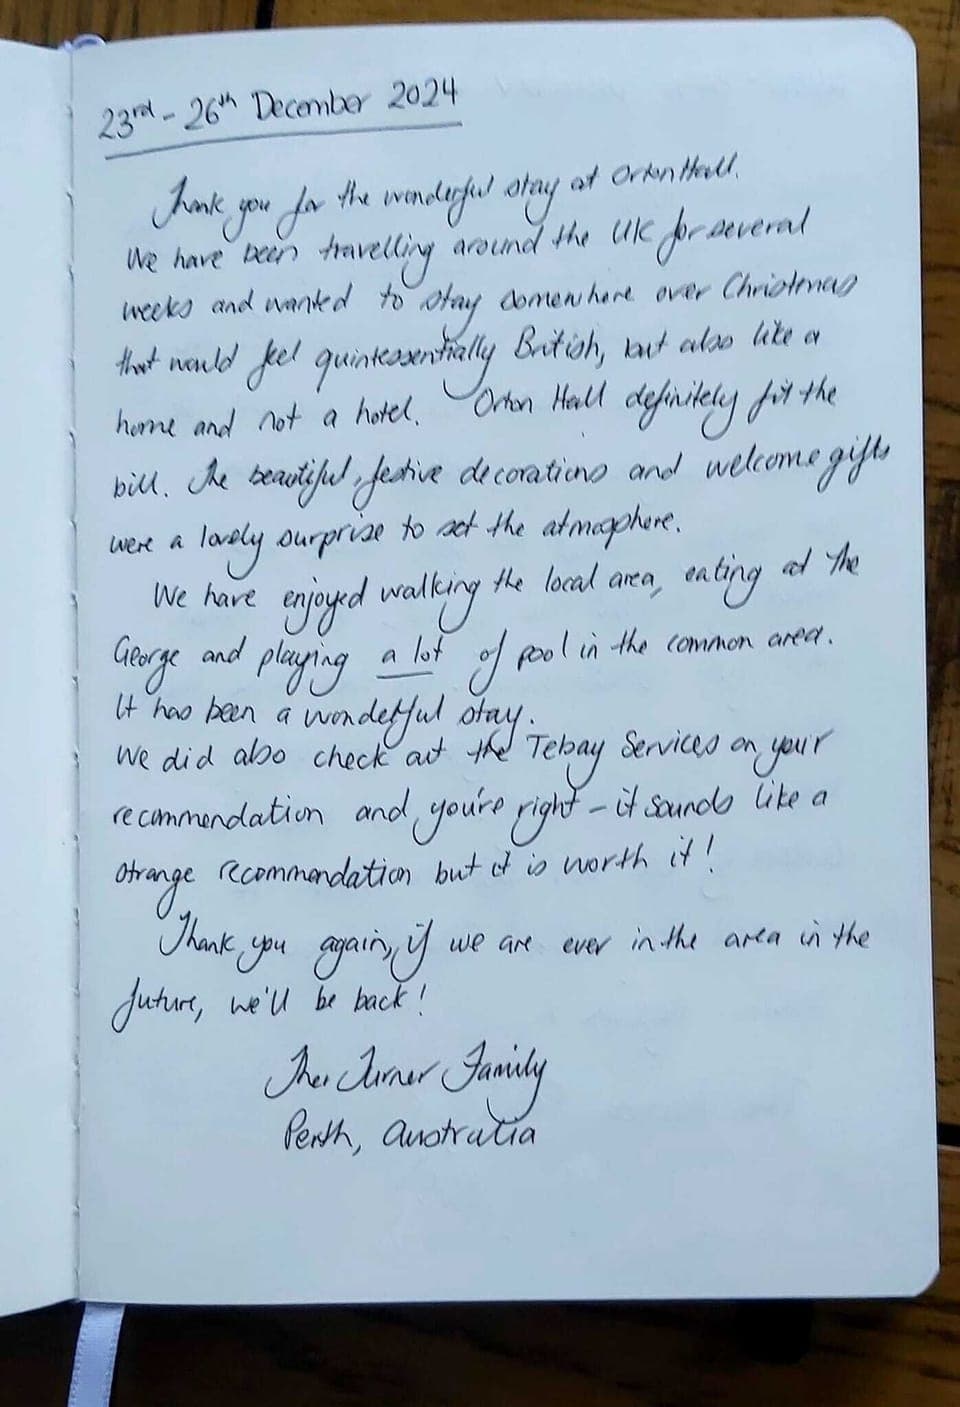 23rd - 26th December 2024
Thank you for the wonderful stay at Orton Hall.
We have been travelling around the UK for several
weeks and wanted to stay somewhere over Christmas
that would feel quintessentially British, but also like a
home and not a hotel. Orton Hall definitely fit the
bill. The beautiful, festive decorations and welcome gifts
were a lovely surprise to set the atmosphere.
We have enjoyed walking the local area, eating at the
George and playing a lot of pool in the common area.
It has been a wonderful stay.
We did also check out the Tebay Services on your
recommendation and you're right - it sounds like a
strange recommendation but it is worth it!
Thank you again, if we are ever in the area in the
future, we'll be back!
The Turner Family
Perth, Australia